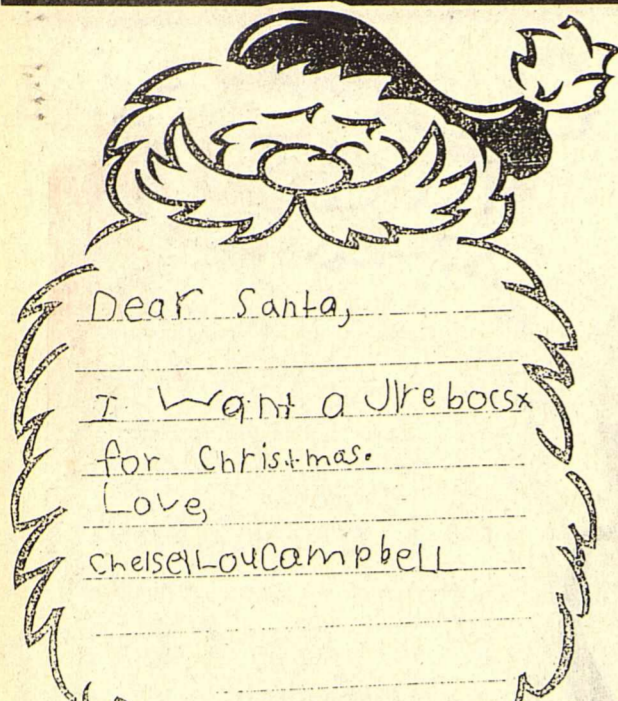 Dear Santa,
I Want a Jlrebocsx
for Christmas.
Love,
chelseyLouCampbeLL